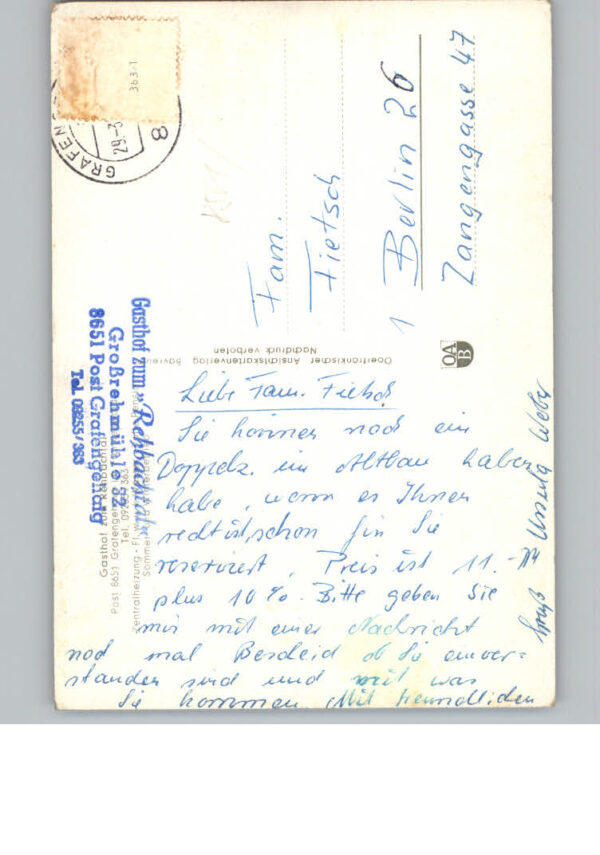 363/1
GRAFENG
29-3
8
Fam.
Fietsch
1 Berlin 26
Zangengasse 47
Oberfränkischer Ansichtskartenverlag Bayreuth
Nachdruck verboten
OAB
Gasthof zum "Rehbachtal"
Großrehmühle 22
8651 Post Grafengehaig
Tel. 09255/383
Gasthof zum Rehbachtal
Post 8651 Grafengehaig
Tel. 09255
Zentralheizung - Fl. w.
Sommer
Liebe Fam. Fietsch
Sie können noch ein
Doppelz. im Altbau haben
habe, wenn es Ihnen
recht ist, schon für Sie
reserviert. Preis ist 11.- DM
plus 10%. Bitte geben Sie
mir mit einer Nachricht
noch mal Bescheid ob Sie einver=
standen sind und mit was
Sie kommen. Mit freundlichen
Gruß Ursula Weber